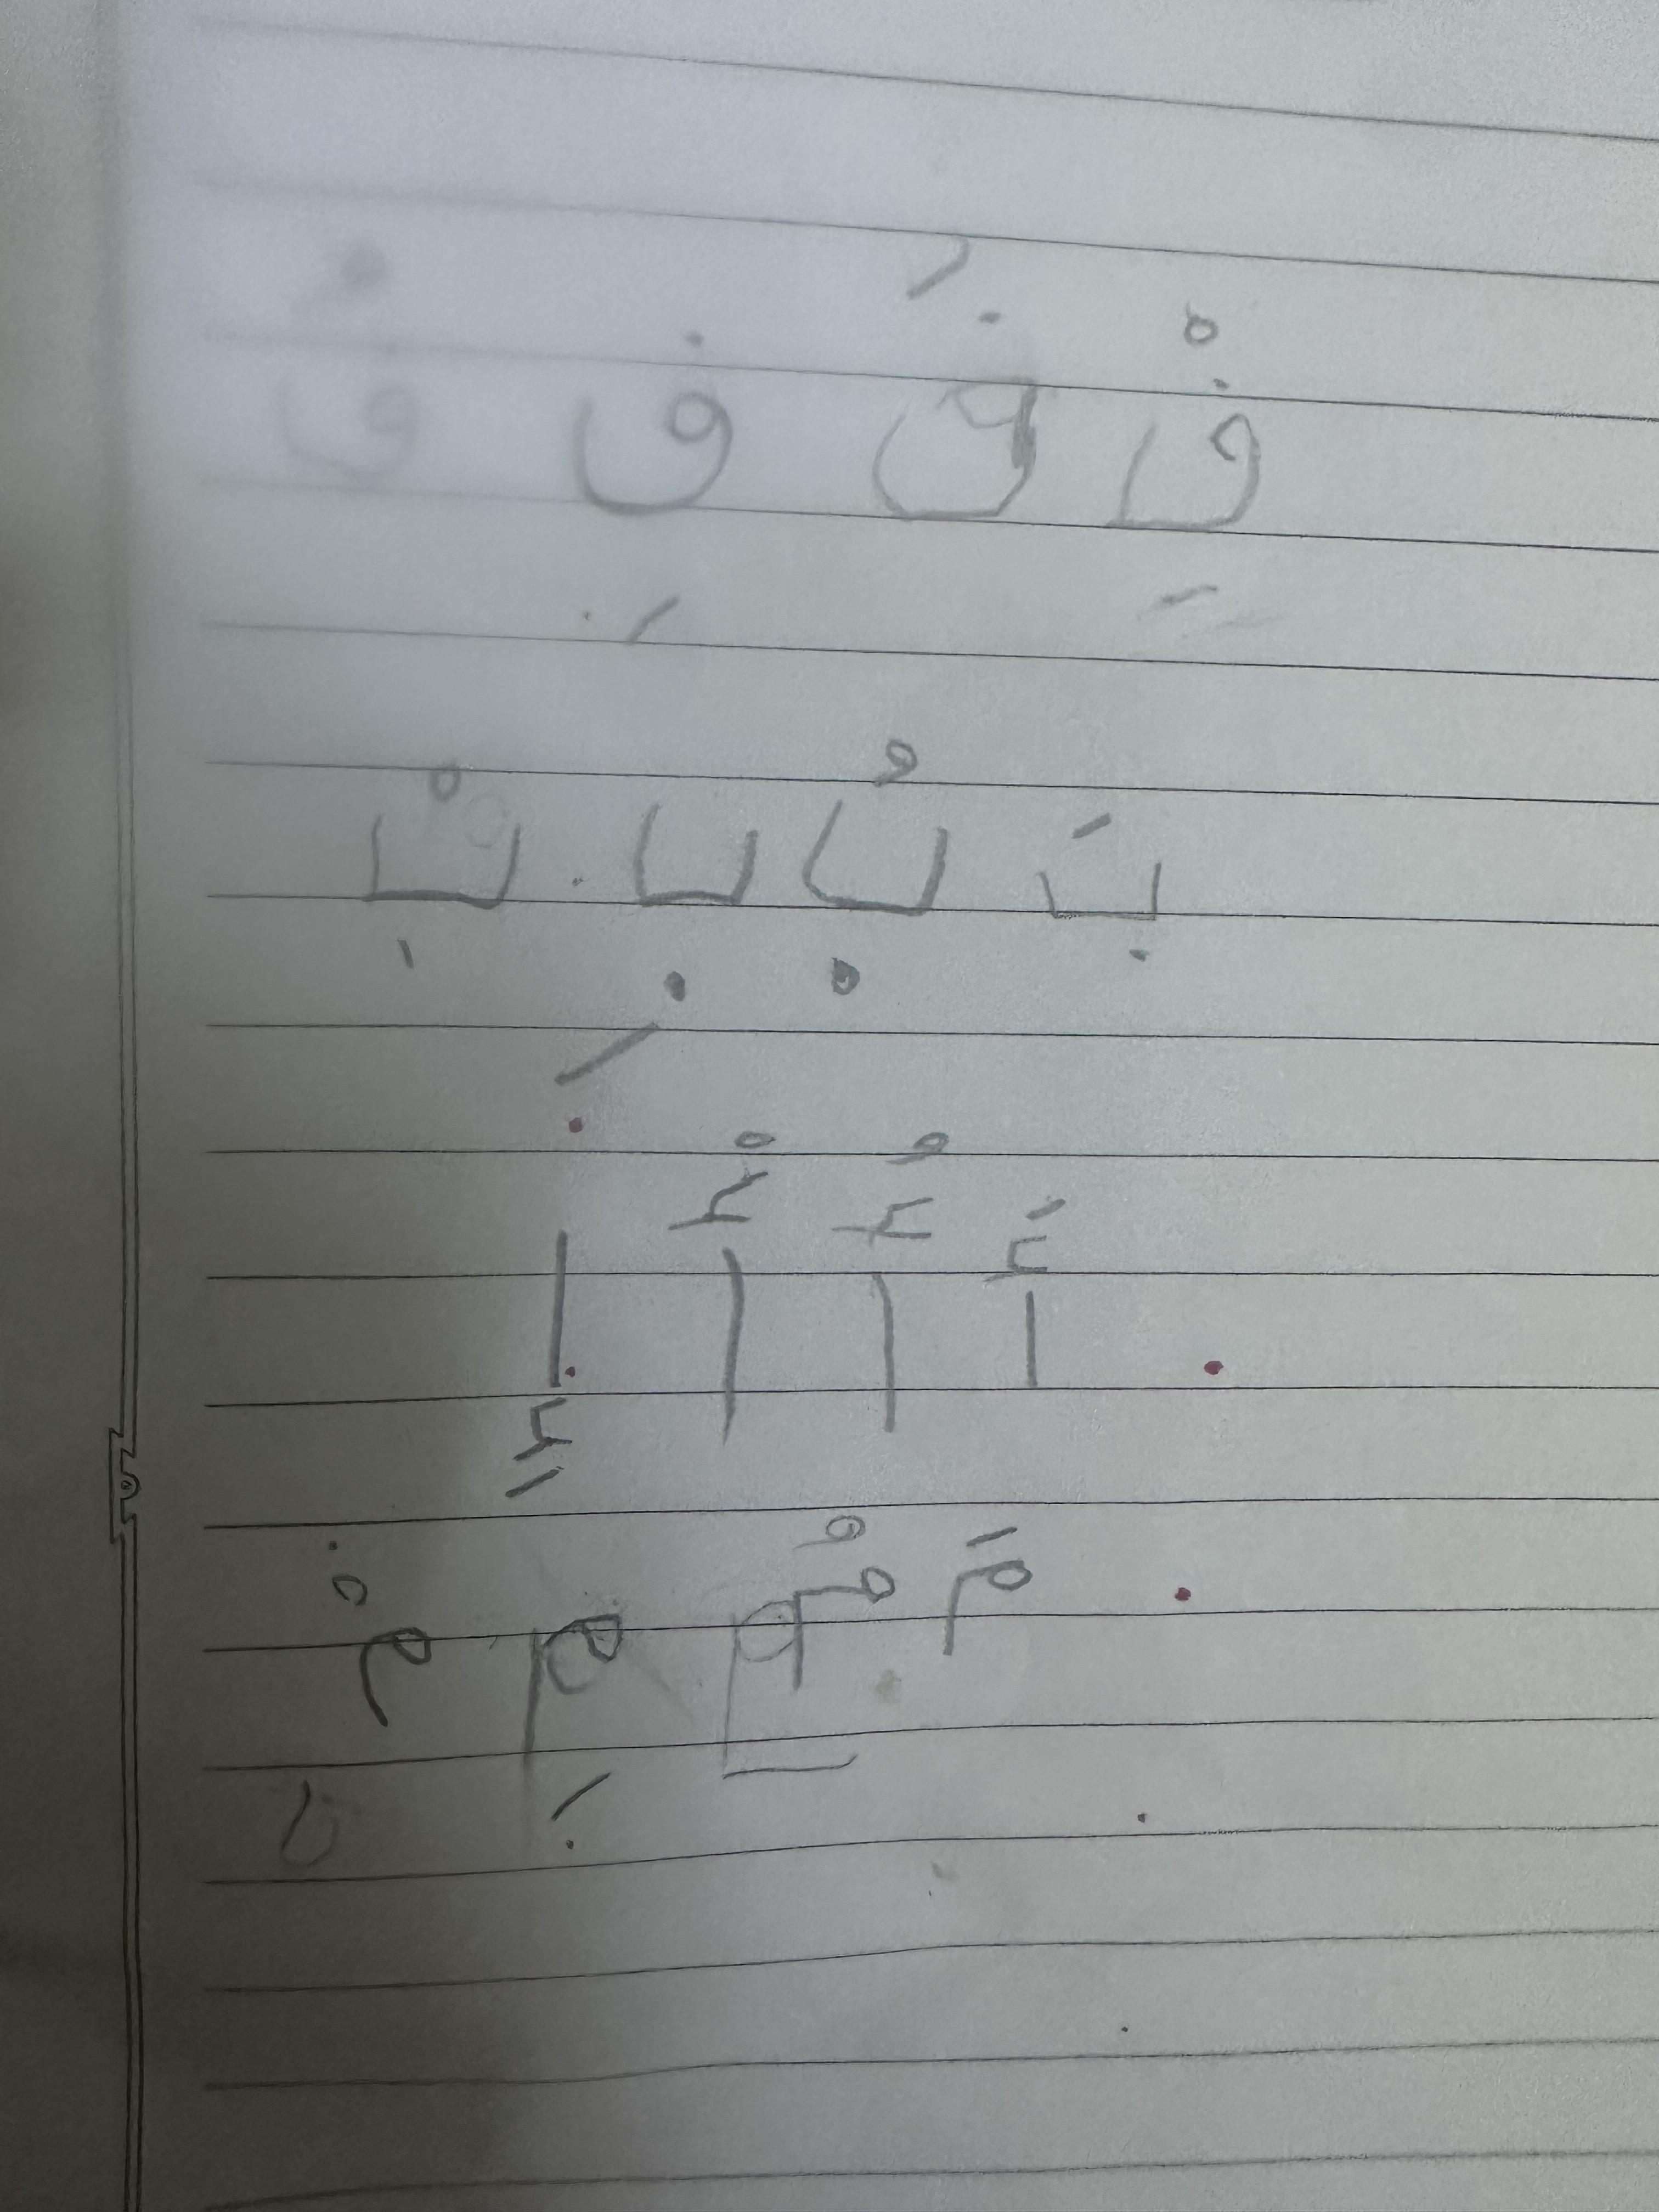 فْ فَ فِ ف
بَ بُ بِ بْ
أَ أُ أْ إِ
مَ مُ مِ مْ